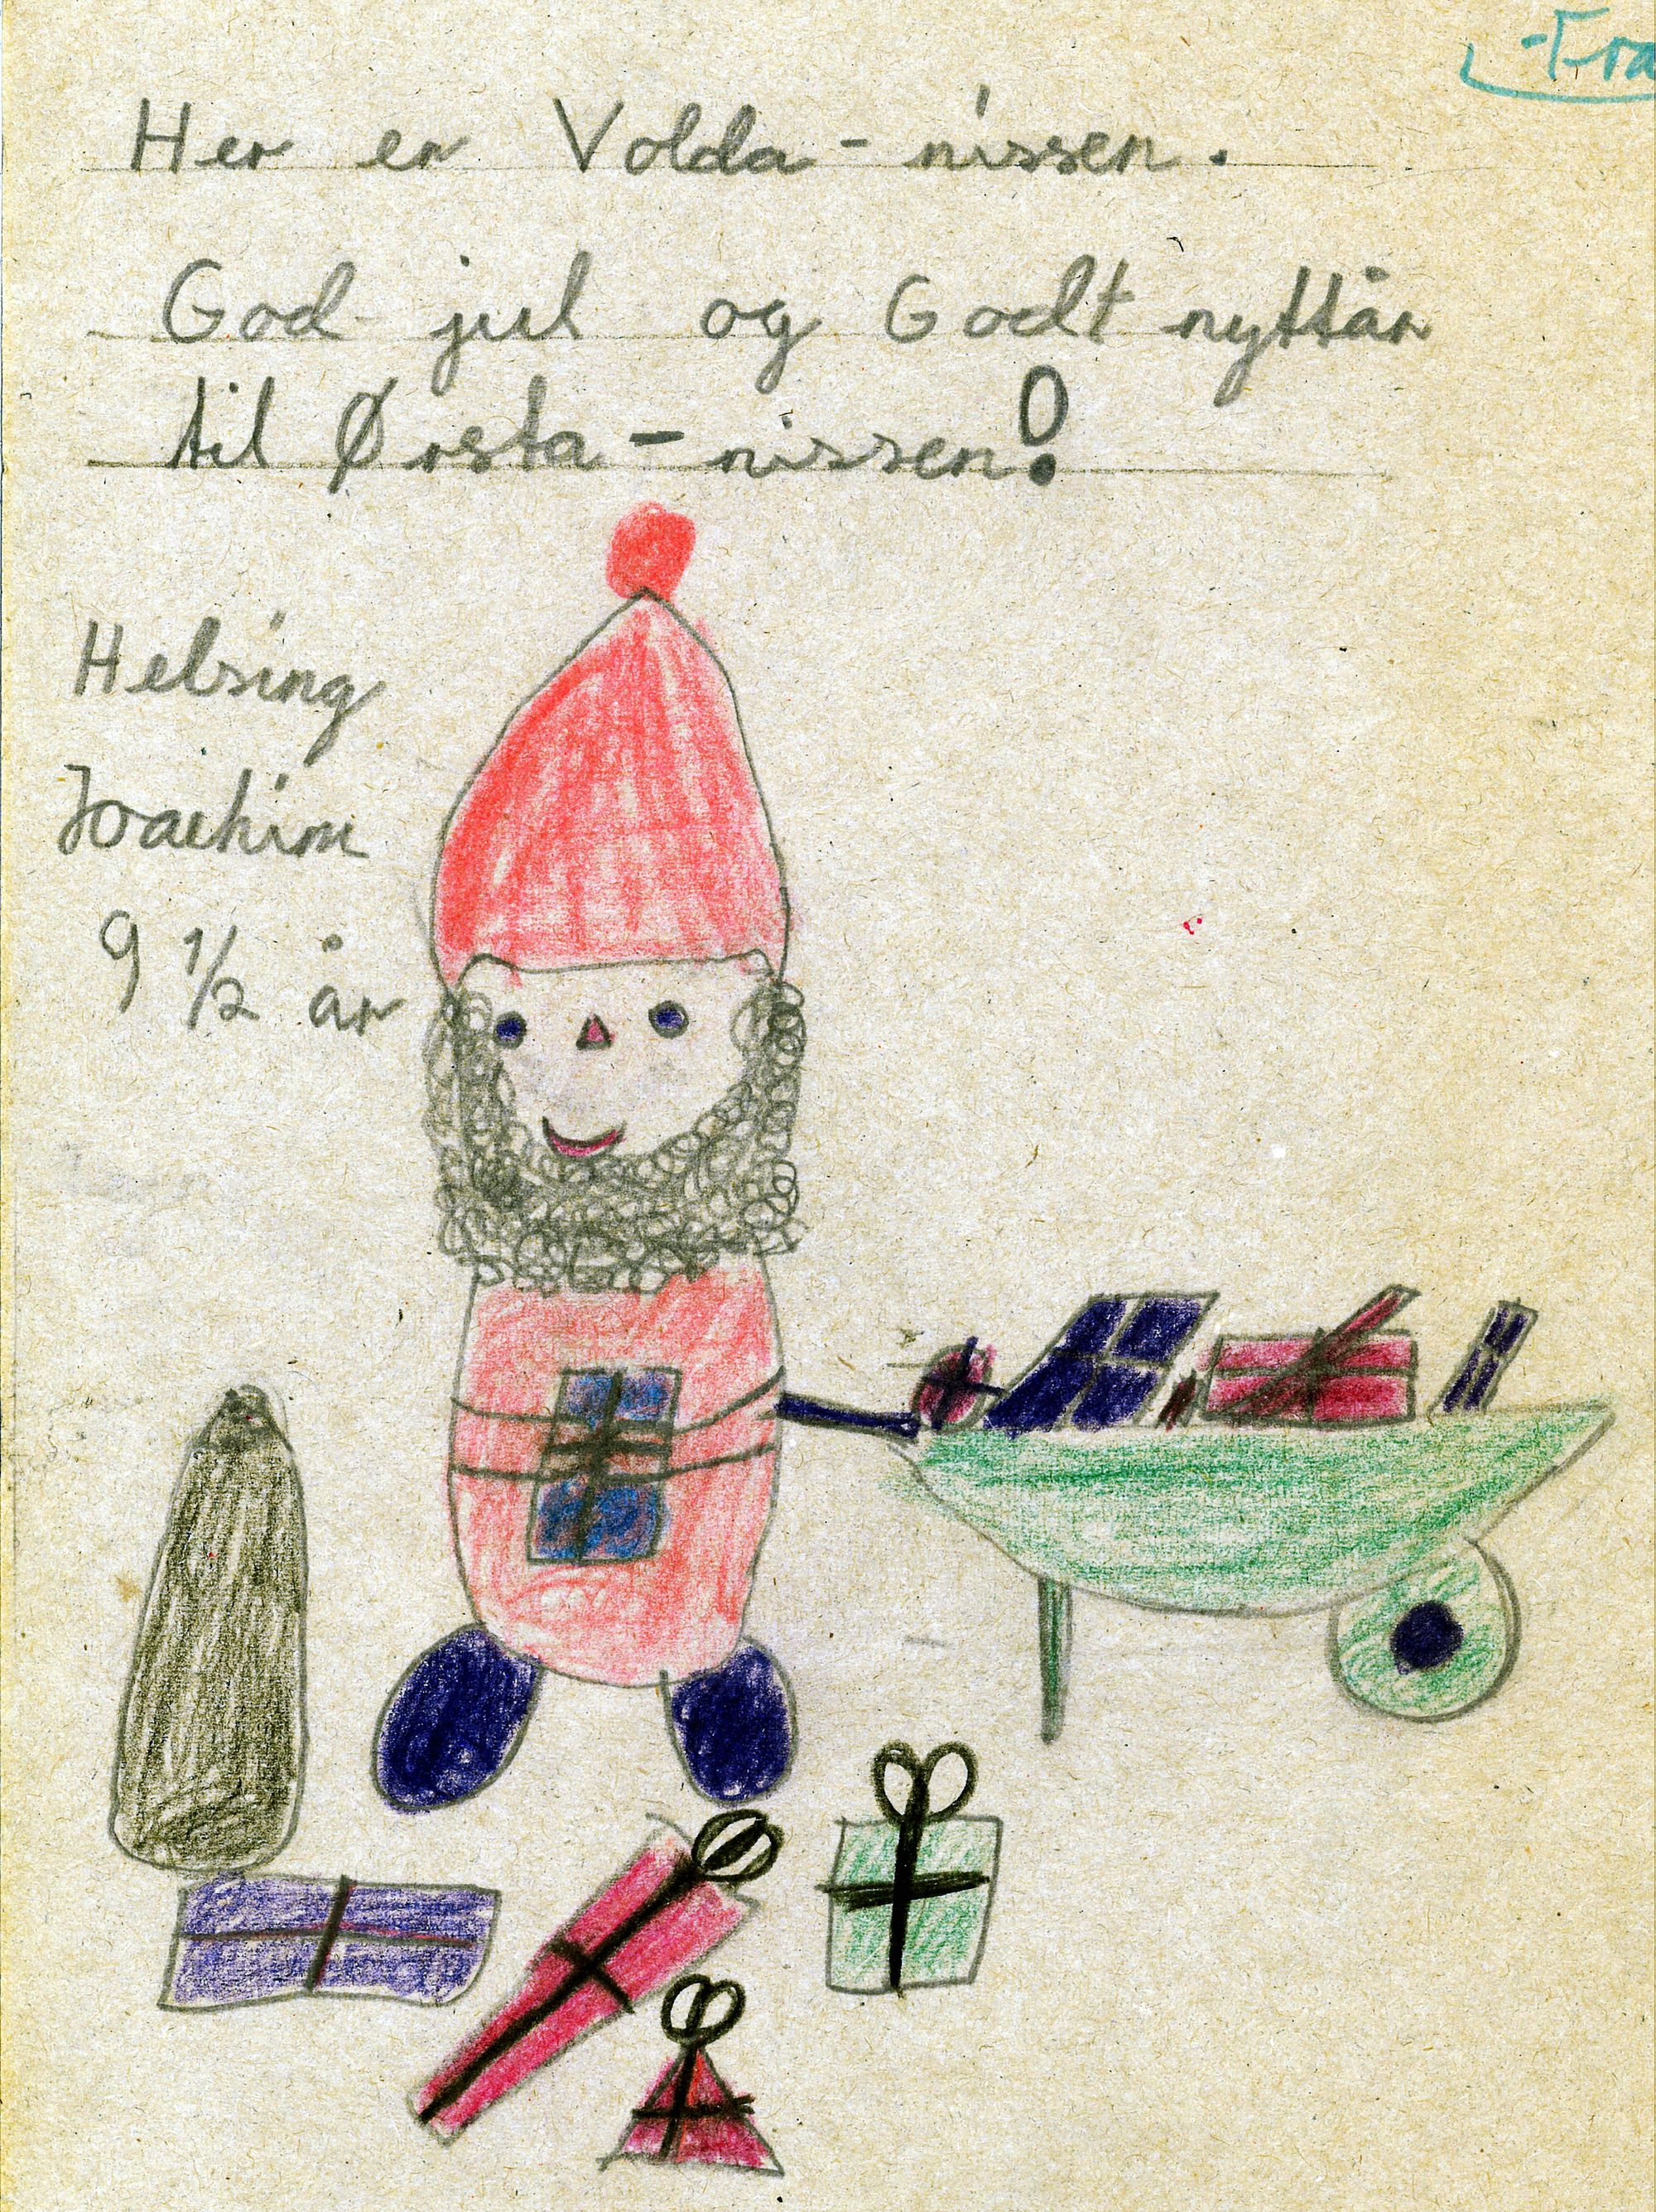 -Fra
Her er Volda-nissen.
God jul og Godt nyttår
til Ørsta-nissen!
Helsing
Joachim
9 1/2 år